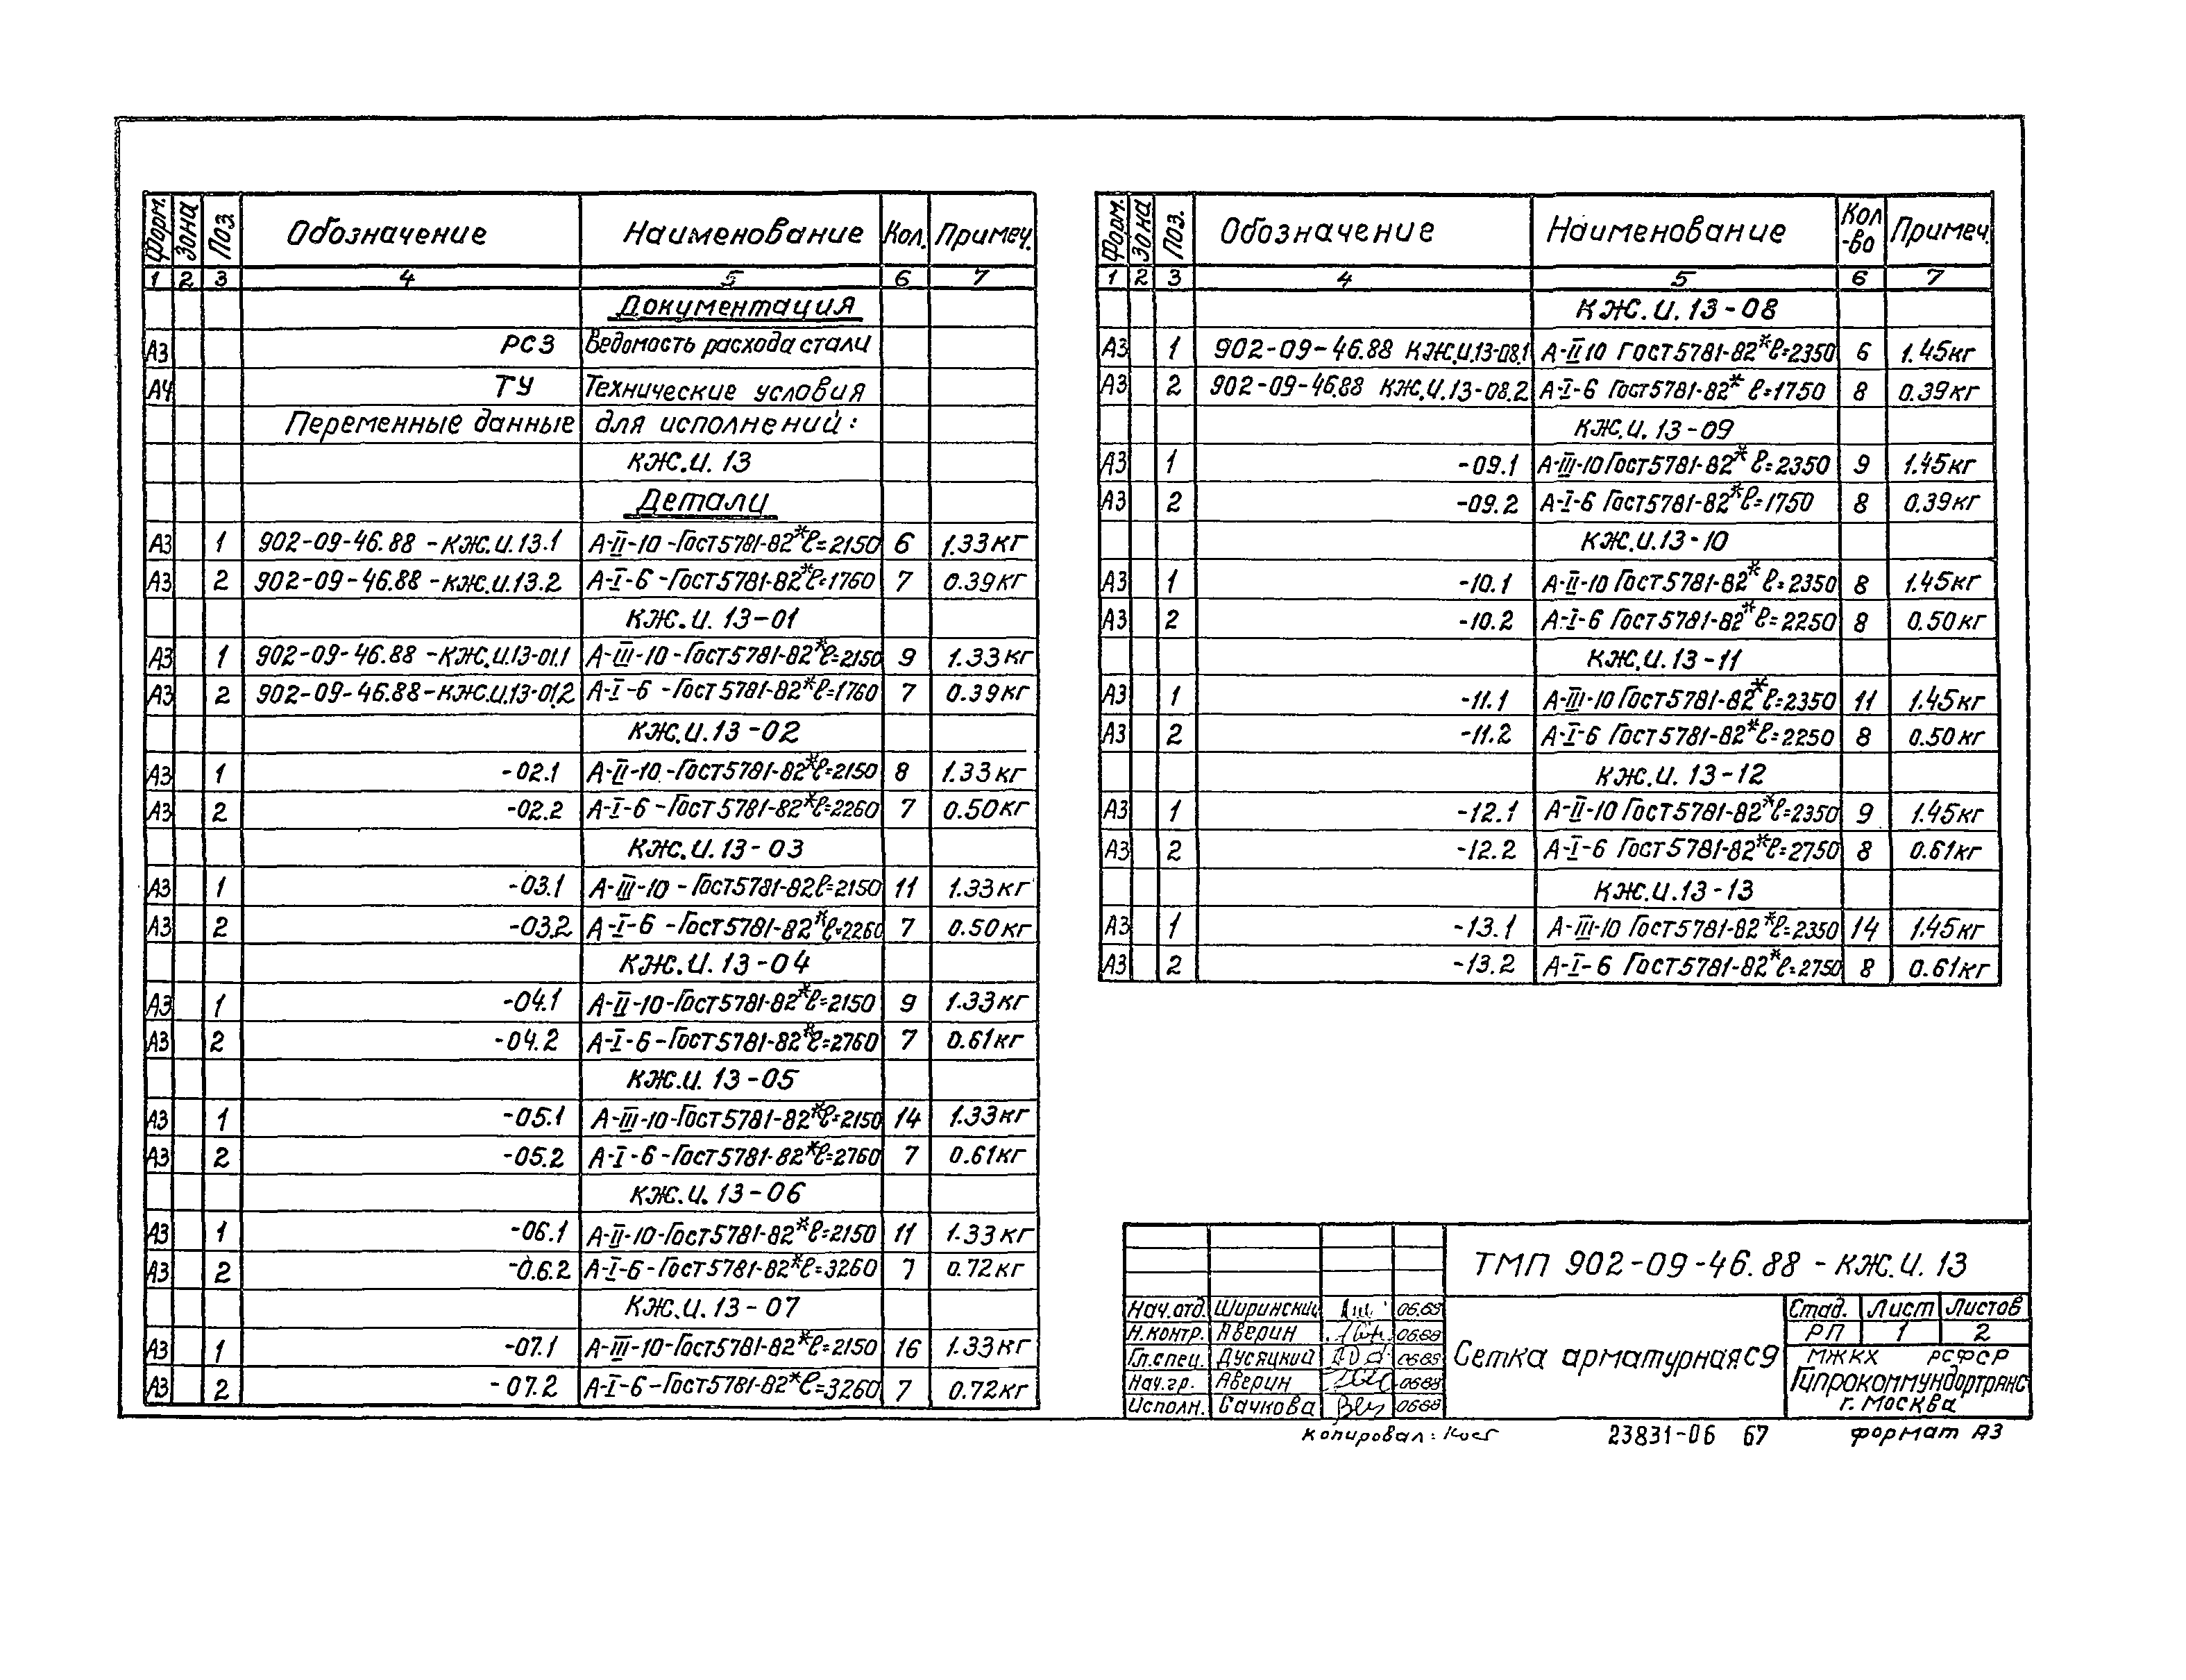 Форм. Зона Поз. Обозначение Наименование Кол. Примеч.
1 2 3 4 5 6 7
Документация
А3 РС3 Ведомость расхода стали
А4 ТУ Технические условия
Переменные данные для исполнений:
КЖ.И. 13
Детали
А3 1 902-09-46.88 -КЖ.И.13.1 А-II-10 -Гост5781-82* ℓ=2150 6 1.33кг
А3 2 902-09-46.88 -КЖ.И.13.2 А-I-6 -Гост5781-82* ℓ=1760 7 0.39кг
КЖ.И. 13-01
А3 1 902-09-46.88 -КЖ.И.13-01.1 А-III-10 -Гост5781-82* ℓ=2150 9 1.33кг
А3 2 902-09-46.88-КЖ.И.13-01.2 А-I-6 -Гост5781-82* ℓ=1760 7 0.39кг
КЖ.И.13-02
А3 1 -02.1 А-II-10 -Гост5781-82* ℓ=2150 8 1.33кг
А3 2 -02.2 А-I-6 -Гост5781-82* ℓ=2260 7 0.50кг
КЖ.И.13-03
А3 1 -03.1 А-III-10 -Гост5781-82 ℓ=2150 11 1.33кг
А3 2 -03.2 А-I-6 -Гост5781-82* ℓ=2260 7 0.50кг
КЖ.И. 13-04
А3 1 -04.1 А-II-10-Гост5781-82* ℓ=2150 9 1.33кг
А3 2 -04.2 А-I-6-Гост5781-82* ℓ=2760 7 0.61кг
КЖ.И. 13-05
А3 1 -05.1 А-III-10-Гост5781-82* ℓ=2150 14 1.33кг
А3 2 -05.2 А-I-6-Гост5781-82* ℓ=2760 7 0.61кг
КЖ.И. 13-06
А3 1 -06.1 А-II-10-Гост5781-82* ℓ=2150 11 1.33кг
А3 2 -0.6.2 А-I-6-Гост5781-82* ℓ=3260 7 0.72кг
КЖ.И.13-07
А3 1 -07.1 А-III-10-Гост5781-82* ℓ=2150 16 1.33кг
А3 2 -07.2 А-I-6-Гост5781-82* ℓ=3260 7 0.72кг
Форм. Зона Поз. Обозначение Наименование Кол-во Примеч.
1 2 3 4 5 6 7
КЖ.И. 13-08
А3 1 902-09-46.88 КЖ.И.13-08.1 А-II10 Гост5781-82* ℓ=2350 6 1.45кг
А3 2 902-09-46.88 КЖ.И.13-08.2 А-I-6 Гост5781-82* ℓ=1750 8 0.39кг
КЖ.И. 13-09
А3 1 -09.1 А-III-10 Гост5781-82* ℓ=2350 9 1.45кг
А3 2 -09.2 А-I-6 Гост5781-82* ℓ=1750 8 0.39кг
КЖ.И.13-10
А3 1 -10.1 А-II-10 Гост5781-82* ℓ=2350 8 1.45кг
А3 2 -10.2 А-I-6 Гост5781-82* ℓ=2250 8 0.50кг
КЖ.И.13-11
А3 1 -11.1 А-III-10 Гост5781-82* ℓ=2350 11 1.45кг
А3 2 -11.2 А-I-6 Гост5781-82* ℓ=2250 8 0.50кг
КЖ.И. 13-12
А3 1 -12.1 А-II-10 Гост5781-82* ℓ=2350 9 1.45кг
А3 2 -12.2 А-I-6 Гост5781-82* ℓ=2750 8 0.61кг
КЖ.И.13-13
А3 1 -13.1 А-III-10 Гост5781-82* ℓ=2350 14 1.45кг
А3 2 -13.2 А-I-6 Гост5781-82* ℓ=2750 8 0.61кг
ТМП 902-09-46.88 - КЖ.И. 13
Нач.отд. Ширинский 06.88
Н.контр. Аверин 06.88
Гл.спец. Дусяцкий 06.88
Нач.гр. Аверин 06.88
Исполн. Сачкова 06.88
Сетка арматурная С9
Стад. Лист Листов
РП 1 2
МЖКХ РСФСР
Гипрокоммундортранс
г. Москва
копировал: 23831-06 67 формат А3